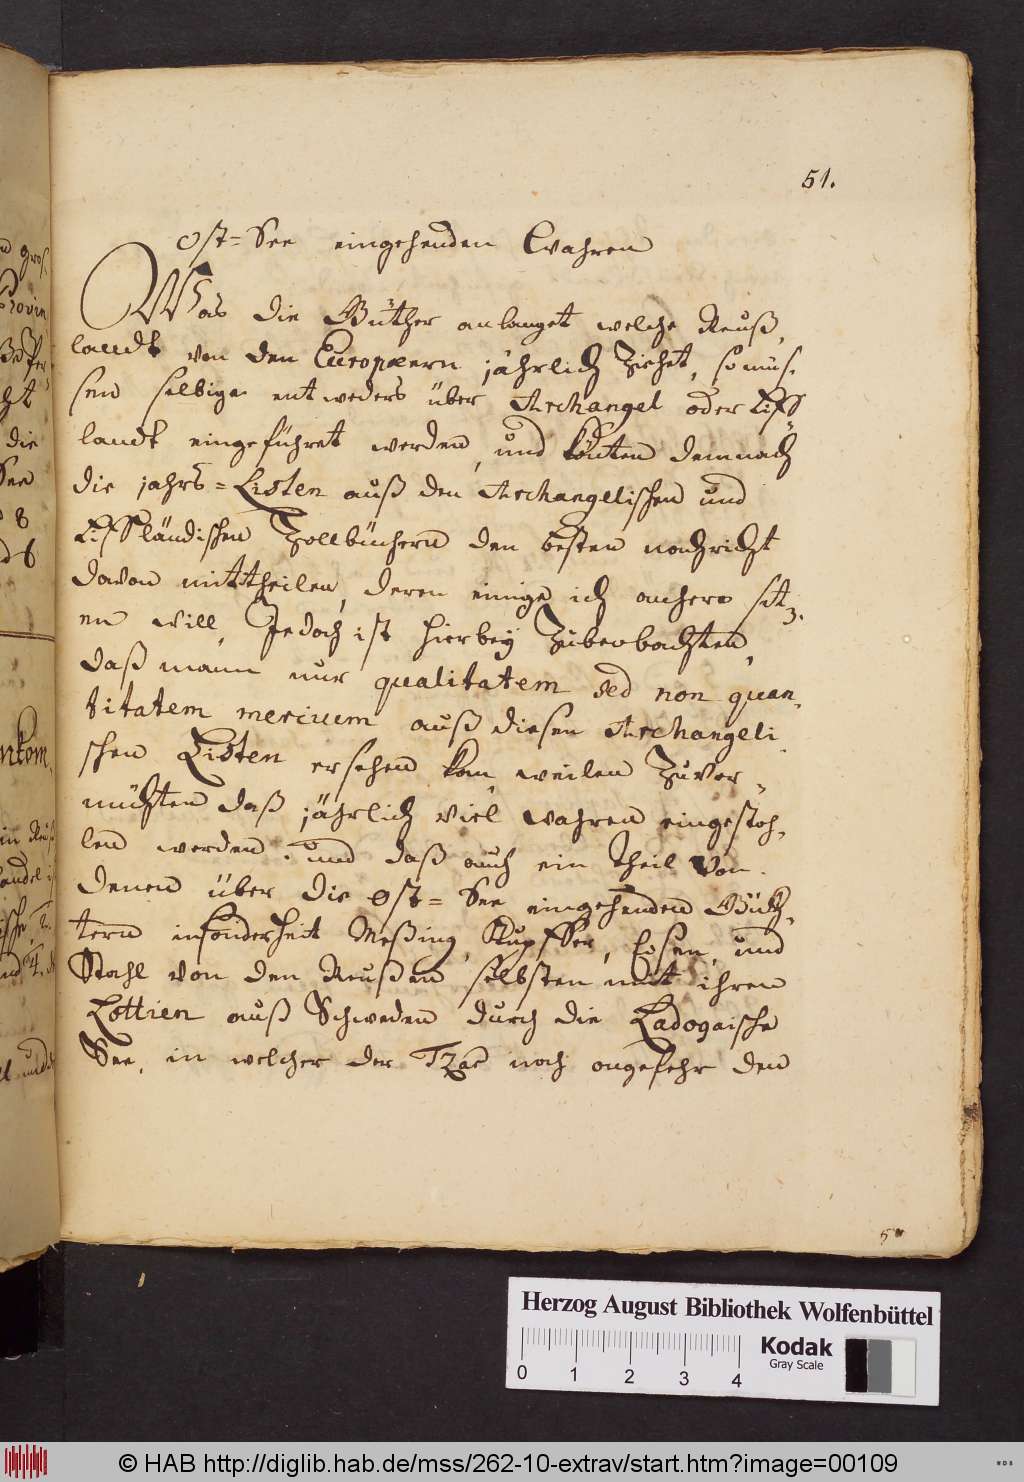 51.
Ost=See eingehenden Wahren
Was die Güther anlanget welche Reuß,
landt von den Europæern jährlich ziehet, so müs,
sen selbige entweders über Archangel oder Lieff
landt eingeführet werden, und könten demnach
die jahrs=Listen auß den Archangelischen und
Liffländischen Zollbüchern den besten nachricht
davon mittheilen, deren einige ich anhero setz,
en will, Jedoch ist hierbey zubeobachten,
daß mann nur qualitatem sed non quan,
titatem mercium auß diesen Archangeli
schen Listen ersehen kan, weilen zuver,
muhten daß jährlich viel wahren eingestoh,
len werden. und daß auch ein theil von
denen über die Ost=See eingehenden Güh,
tern insonderheit Meßing, Kupffer, Eisen, und
Stahl von den Reußen selbsten mit ihren
Lottien auß Schweden durch die Ladogaische
See, in welcher der Tzar noch ongefehr den
Herzog August Bibliothek Wolfenbüttel
0 1 2 3 4
Kodak
Gray Scale
© HAB http://diglib.hab.de/mss/262-10-extrav/start.htm?image=00109